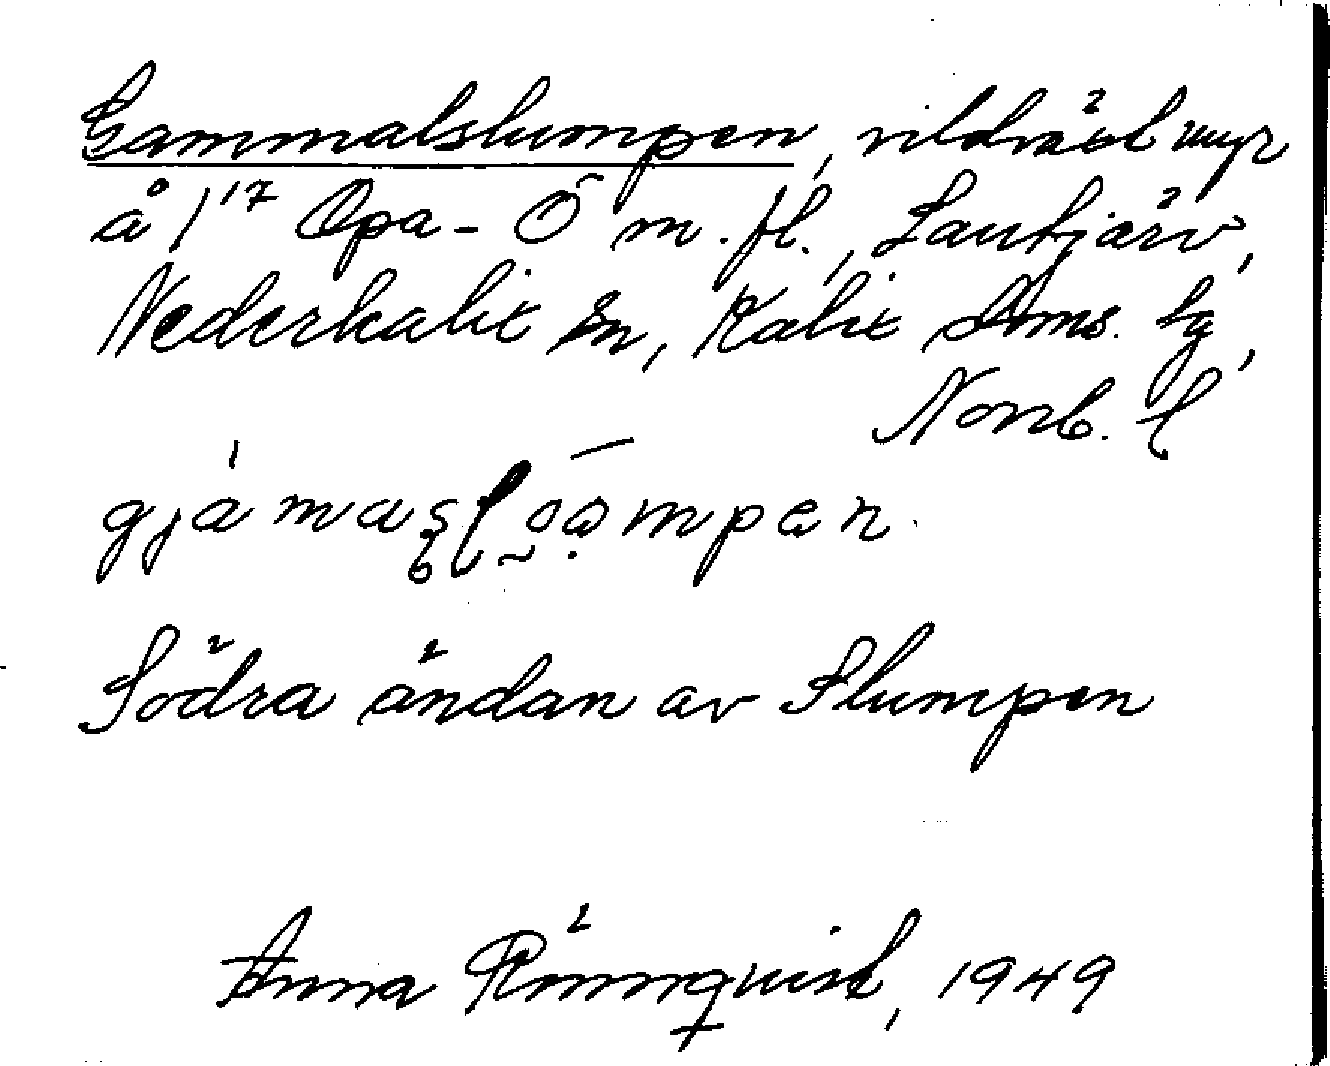 Gammalslumpen, vildväxt myr
å 1/17 Opa-Ö m.fl., Lantjärv,
Nederkalix sn, Kalix doms. lg,
Norrb. l
Södra ändan av Slumpen
Anna Rönnqvist, 1949